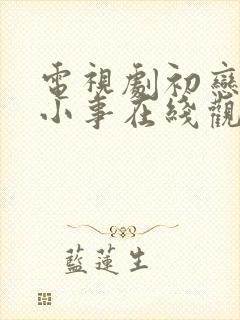 電視劇初戀
小事在綫觀
藍蓮生